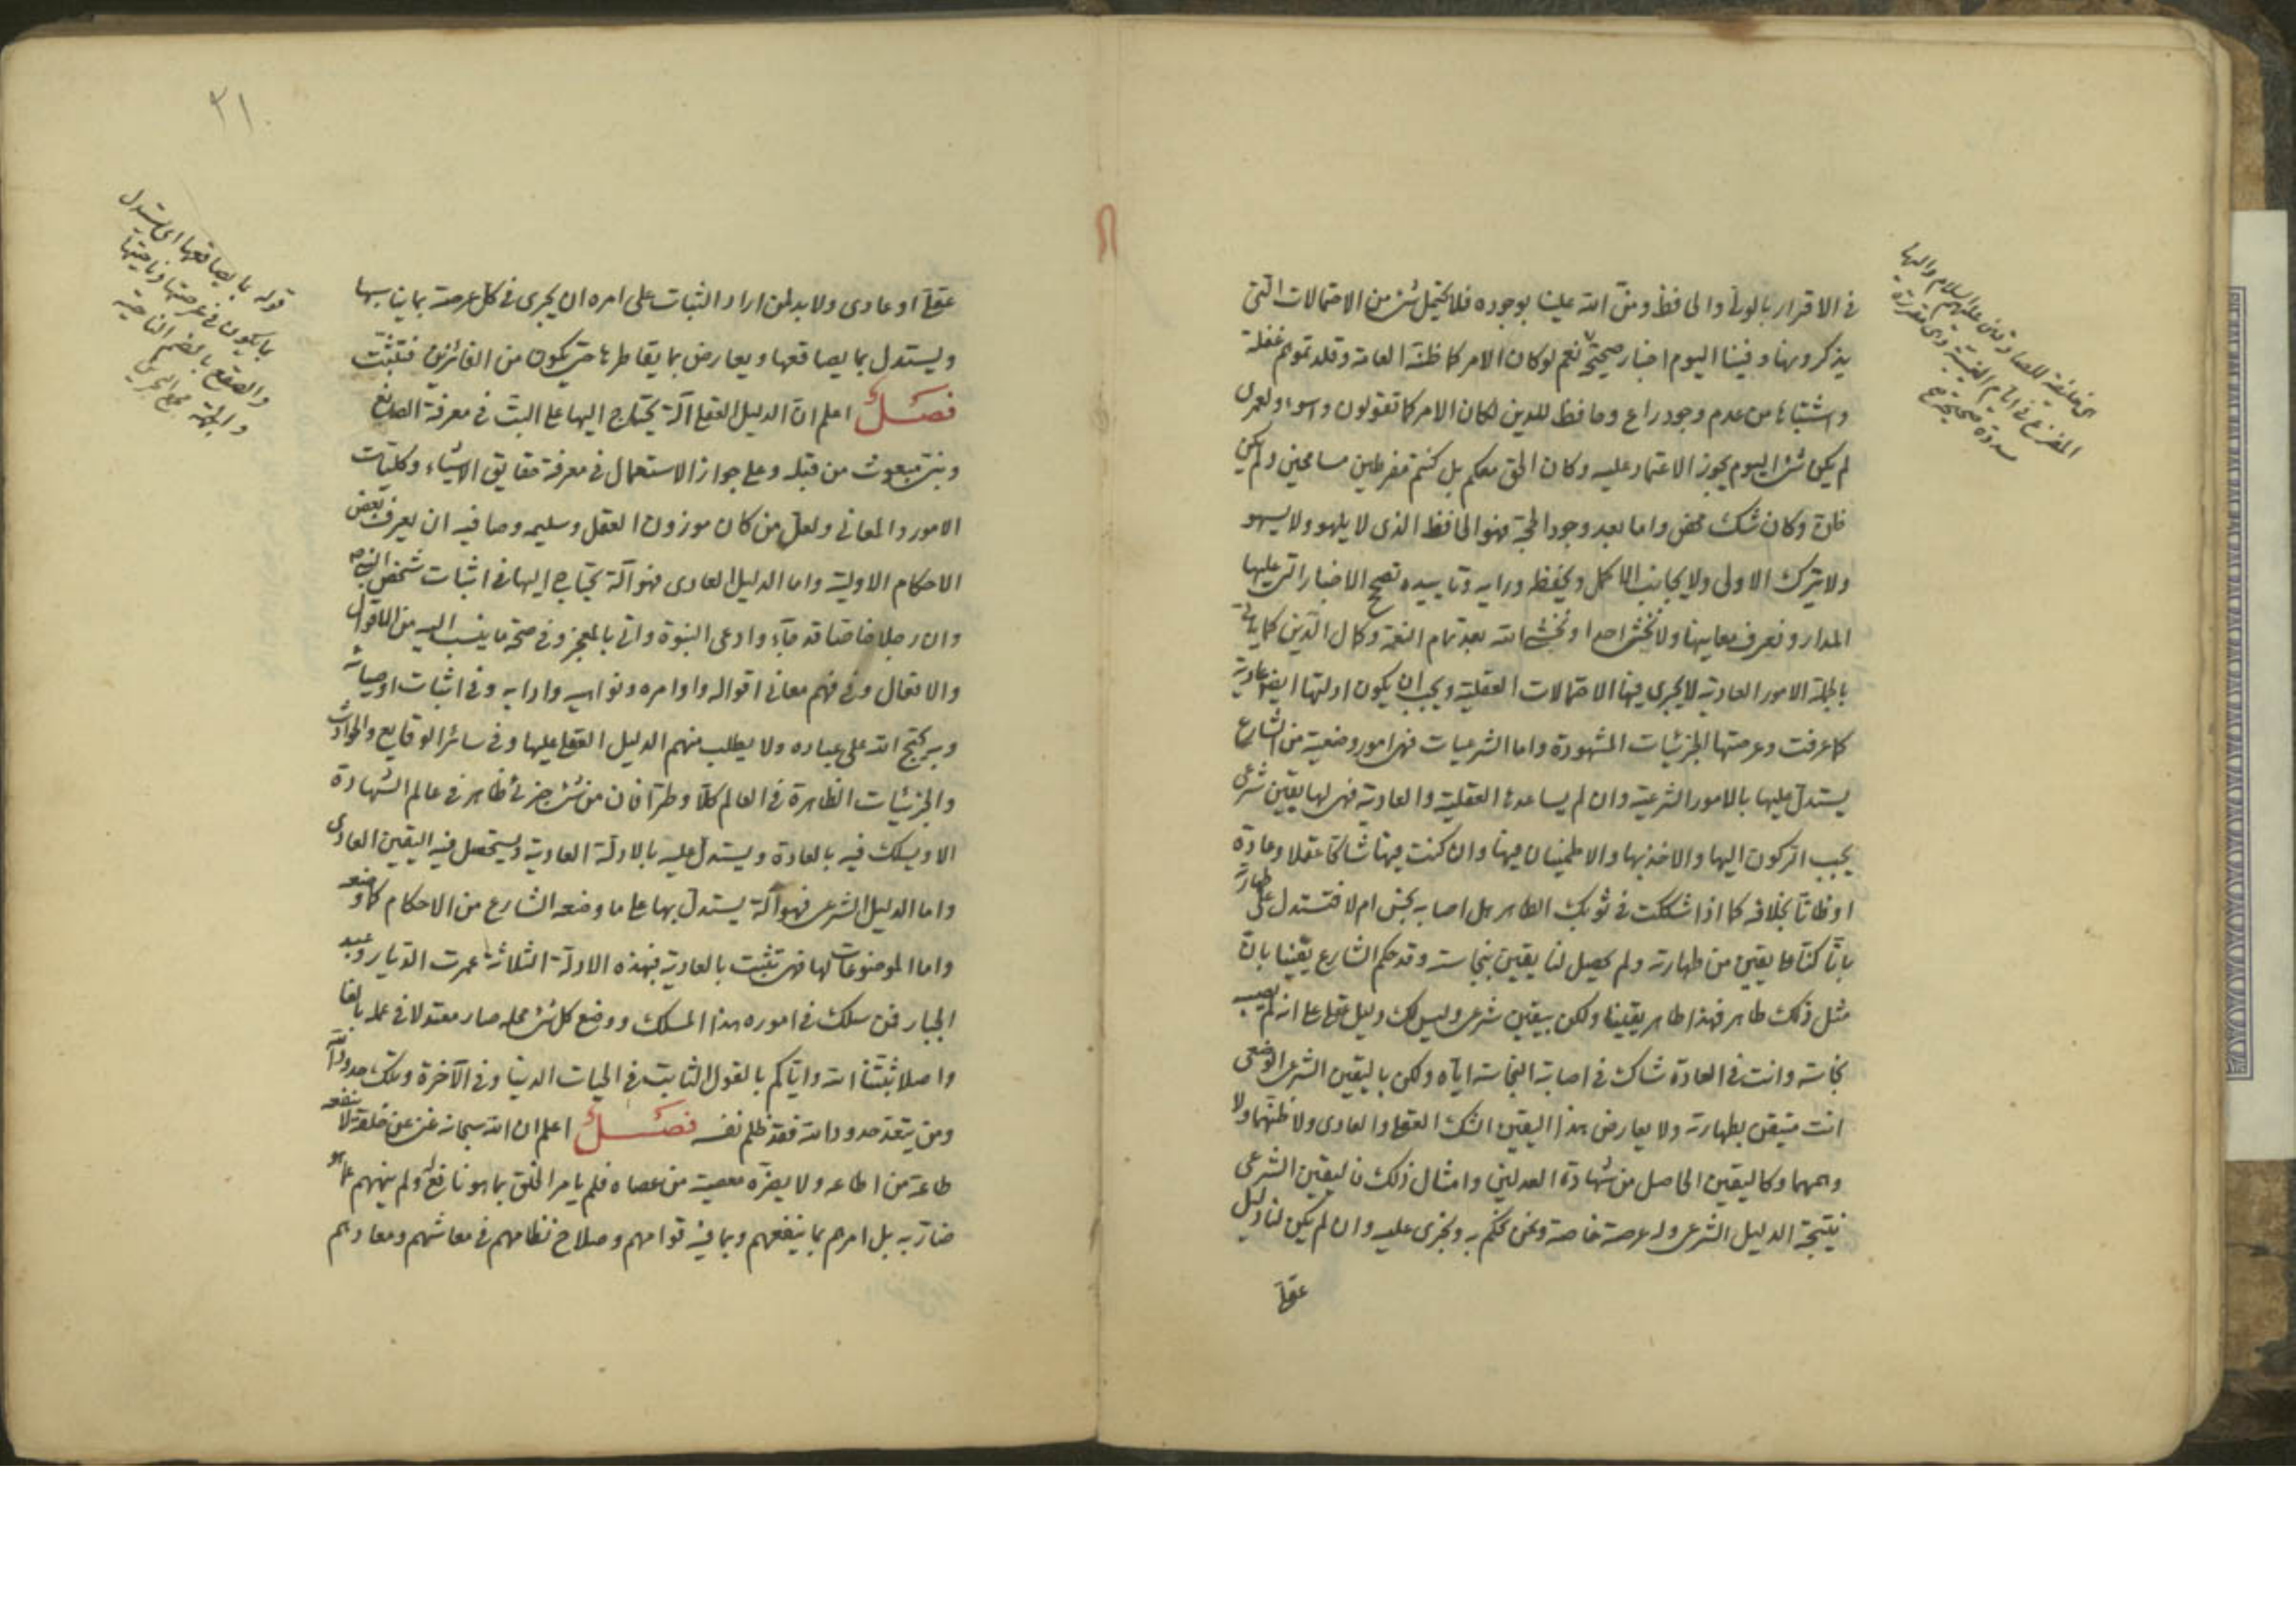 في الاقرار بالولي والحافظ ومن الله علينا بوجوده فلا يحتمل شئ من الاحتمالات التي
يذكرونها وفينا اليوم اخبار صحيحة نعم لو كان الامر كما ظنه العامة وقلدتموهم غفلة
واشتباها من عدم وجود راع وحافظ للدين لكان الامر كما تقولون واسوء ولعمري
لم يكن شئ اليوم يجوز الاعتماد عليه وكان الحق معكم بل كنتم مفرطين مسامحين ولم يكن
وكان شك محض واما بعد وجود الحجة فهو الحافظ الذي لا يلهو ولا يسهو
ولا يترك الاولى ولا يجانب الاكمل وبحفظه ورايه وتاييده تصح الاخبار التي عليها
المدار ونعرف معانيها ولا نخش احدا ونخشى الله بعد تمام النعمة وكمال الدين كما ياتي
بالجملة الامور العادية لا يجري فيها الاحتمالات العقلية ويجب ان يكون ادلتها ايضا عادية
كما عرفت وعرصتها الجزئيات المشهودة واما الشرعيات فهي امور وضعية من الشارع
يستدل عليها بالامور الشرعية وان لم يساعدها العقلية والعادية فهي لها يقين شرعي
يجب الركون اليها والاخذ بها والاطمينان فيها وان كنت فيها شاكا عقلا وعادة
او ظانا بخلافه كما اذا شككت في ثوبك الطاهر هل اصابه نجس ام لا فتستدل على طهارته
بانا كنا على يقين من طهارته ولم يحصل لنا يقين بنجاسته وقد حكم الشارع يقينا بان
مثل ذلك طاهر فهذا طاهر يقينا ولكن بيقين شرعي وليس لك دليل عقلي على انه لم يصبه
نجاسة وانت في العادة شاك في اصابة النجاسة اياه ولكن باليقين الشرعي الوضعي
انت متيقن بطهارته ولا يعارض هذا اليقين الشك العقلي والعادي ولا ظنهما ولا
وهمهما وكاليقين الحاصل من شهادة العدلين وامثال ذلك فاليقين الشرعي
نتيجة الدليل الشرعي وله عرصة خاصة ونحن نحكم به ونجري عليه وان لم يكن لنا دليل
عقلي
٢١
عقلي او عادي ولا بد لمن اراد الثبات على امره ان يجري في كل عرصة بما يناسبها
ويستدل بما يصاقعها ويعارض بما يقاطرها حتى يكون من الفائزين فتثبت
فصل اعلم ان الدليل العقلي آلة يحتاج اليها على البت في معرفة الصانع
ونبي مبعوث من قبله وعلى جواز الاستعمال في معرفة حقايق الاشياء وكليات
الامور والمعاني ولعل من كان موزون العقل وسليمه وصافيه ان يعرف بعض
الاحكام الاولية واما الدليل العادي فهو آلة يحتاج اليها في اثبات شخص النبي
وان رجلا خاصا قد جاء وادعى النبوة واتى بالمعجز وفي صحة ما ينسب اليه من الاقوال
والافعال وفي فهم معاني اقواله واوامره ونواهيه وادابه وفي اثبات اوصيائه
وبه يحتج الله على عباده ولا يطلب منهم الدليل العقلي عليها وفي سائر الوقايع والحوادث
والجزئيات الظاهرة في العالم كلا وطرا فان من شئ جزئي ظاهر في عالم الشهادة
الا ويسلك فيه بالعادة ويستدل عليه بالادلة العادية ويستحصل فيه اليقين العادي
واما الدليل الشرعي فهو آلة يستدل بها على ما وضعه الشارع من الاحكام كما وضعه
واما الموضوعات لها فهي تثبت بالعادية فبهذه الادلة الثلاثة عمرت الديار وعبد
الجبار فمن سلك في اموره هذا المسلك ووضع كل شئ محله صار معتدلا في عمله بالغا
واصلا ثبتنا الله واياكم بالقول الثابت في الحيات الدنيا وفي الآخرة وتلك حدود الله
ومن يتعد حدود الله فقد ظلم نفسه فصل اعلم ان الله سبحانه غني عن خلقه لا ينفعه
طاعة من اطاعه ولا يضره معصية من عصاه فلم يامر الخلق بما هو نافع له ولم ينههم عما هو
ضار به بل امرهم بما ينفعهم وبما فيه قوامهم وصلاح نظامهم في معاشهم ومعادهم
قوله بما يصاقعها اي يستدل
بما يكون في عرصتها وناحيتها
والصقع بالضم الناحية
والجهة مجمع البحرين